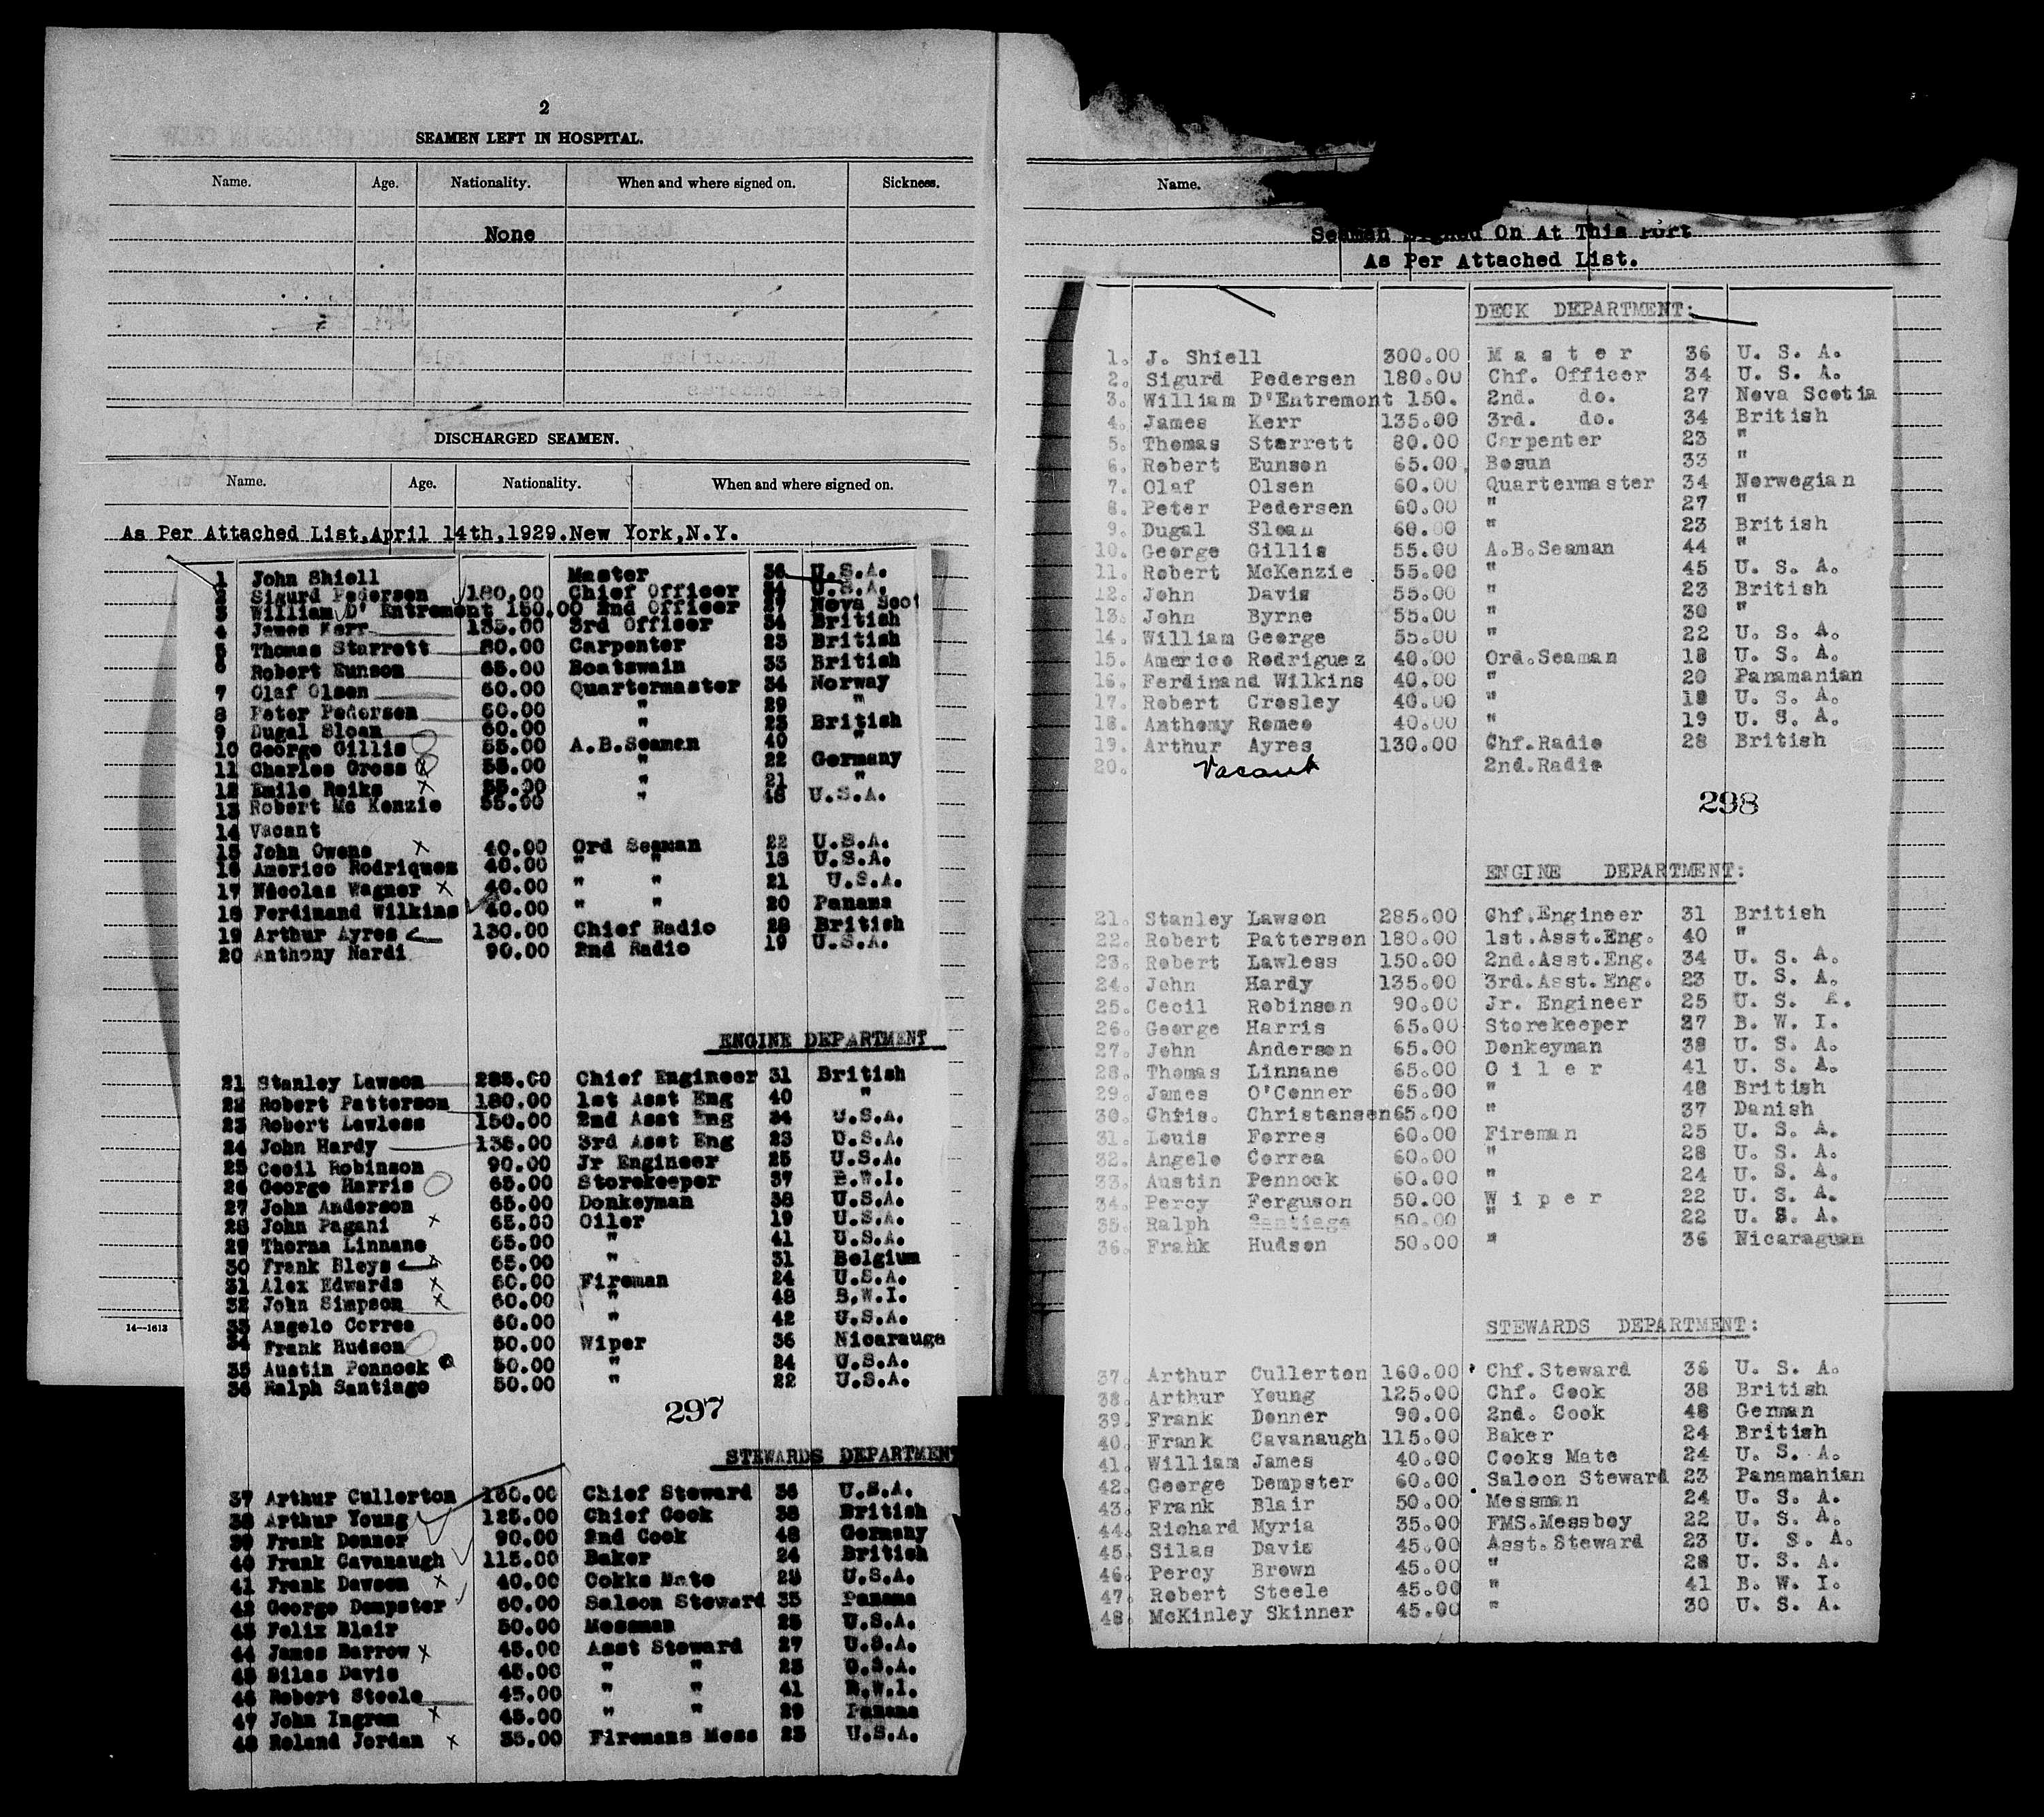 2
SEAMEN LEFT IN HOSPITAL.
Name. Age. Nationality. When and where signed on. Sickness.
None
DISCHARGED SEAMEN.
Name. Age. Nationality. When and where signed on.
As Per Attached List,April 14th,1929.New York,N.Y.
1 John Shiell Master 36 U.S.A.
2 Sigurd Pedersen 180.00 Chief Officer 34 U.S.A.
3 William D' Entremont 150.00 2nd Officer 27 Nova Scot
4 James Kerr 135.00 3rd Officer 34 British
5 Thomas Starrett 80.00 Carpenter 23 British
6 Robert Eunson 65.00 Boatswain 33 British
7 Olaf Olsen 60.00 Quartermaster 34 Norway
8 Peter Pedersen 60.00 " 29 "
9 Dugal Sloan 60.00 " 23 British
10 George Gillis 55.00 A.B.Seamen 40 "
11 Charles Gross x 55.00 " 22 Germany
12 Emile Reiks x 55.00 " 21 "
13 Robert Mc Kenzie 55.00 " 46 U.S.A.
14 Vacant
15 John Owens x 40.00 Ord Seaman 22 U.S.A.
16 Americo Rodriques 40.00 " " 18 U.S.A.
17 Nicolas Wagner x 40.00 " " 21 U.S.A.
18 Ferdinand Wilkins 40.00 " " 20 Panama
19 Arthur Ayres 130.00 Chief Radio 28 British
20 Anthony Nardi 90.00 2nd Radio 19 U.S.A.
ENGINE DEPARTMENT
21 Stanley Lawson 285.00 Chief Engineer 31 British
22 Robert Patterson 180.00 1st Asst Eng 40 "
23 Robert Lawless 150.00 2nd Asst Eng 34 U.S.A.
24 John Hardy 135.00 3rd Asst Eng 23 U.S.A.
25 Cecil Robinson 90.00 Jr Engineer 25 U.S.A.
26 George Harris 65.00 Storekeeper 37 B.W.I.
27 John Anderson 65.00 Donkeyman 38 U.S.A.
28 John Pagani x 65.00 Oiler 19 U.S.A.
29 Thorna Linnane 65.00 " 41 U.S.A.
30 Frank Bleys x 65.00 " 31 Belgium
31 Alex Edwards x 60.00 Fireman 24 U.S.A.
32 John Simpson x 60.00 " 48 B.W.I.
33 Angelo Correa 60.00 " 42 U.S.A.
34 Frank Hudson 50.00 Wiper 36 Nicarauga
35 Austin Pennock 50.00 " 24 U.S.A.
36 Ralph Santiago 50.00 " 22 U.S.A.
297
STEWARDS DEPARTMENT
37 Arthur Cullerton 160.00 Chief Steward 36 U.S.A.
38 Arthur Young 125.00 Chief Cook 38 British
39 Frank Donner 90.00 2nd Cook 48 Germany
40 Frank Cavanaugh 115.00 Baker 24 British
41 Frank Dawson x 40.00 Cokks Mate U.S.A.
42 George Dempster 60.00 Saloon Steward 35 Panama
43 Felix Blair 50.00 Messman 25 U.S.A.
44 James Barrow x 45.00 Asst Steward 27 U.S.A.
45 Silas Davis 45.00 " " 23 U.S.A.
46 Robert Steele 45.00 " " 41 B.W.I.
47 John Ingram x 45.00 " " 29 Panama
48 Roland Jordan x 35.00 Firemans Mess 23 U.S.A.
14—1613
Name.
Seamen Signed On At This Port
As Per Attached List.
DECK DEPARTMENT:
1. J. Shiell 300.00 Master 36 U. S. A.
2. Sigurd Pedersen 180.00 Chf. Officer 34 U. S. A.
3. William D'Entremont 150. 2nd. do. 27 Nova Scotia
4. James Kerr 135.00 3rd. do. 34 British
5. Thomas Starrett 80.00 Carpenter 23 "
6. Robert Eunson 65.00 Bosun 33 "
7. Olaf Olsen 60.00 Quartermaster 34 Norwegian
8. Peter Pedersen 60.00 " 27 "
9. Dugal Sloan 60.00 " 23 British
10. George Gillis 55.00 A.B.Seaman 44 "
11. Robert McKenzie 55.00 " 45 U. S. A.
12. John Davis 55.00 " 23 British
13. John Byrne 55.00 " 30 "
14. William George 55.00 " 22 U. S. A.
15. Americo Rodriguez 40.00 Ord.Seaman 18 U. S. A.
16. Ferdinand Wilkins 40.00 " 20 Panamanian
17. Robert Crosley 40.00 " 18 U. S. A.
18. Anthony Romeo 40.00 " 19 U. S. A.
19. Arthur Ayres 130.00 Chf.Radio 28 British
20. Vacant 2nd.Radio
298
ENGINE DEPARTMENT:
21. Stanley Lawson 285.00 Chf.Engineer 31 British
22. Robert Patterson 180.00 1st.Asst.Eng. 40 "
23. Robert Lawless 150.00 2nd.Asst.Eng. 34 U. S. A.
24. John Hardy 135.00 3rd.Asst.Eng. 23 U. S. A.
25. Cecil Robinson 90.00 Jr. Engineer 25 U. S. A.
26. George Harris 65.00 Storekeeper 27 B. W. I.
27. John Anderson 65.00 Donkeyman 38 U. S. A.
28. Thomas Linnane 65.00 Oiler 41 U. S. A.
29. James O'Conner 65.00 " 48 British
30. Chris. Christensen 65.00 " 37 Danish
31. Louis Forres 60.00 Fireman 25 U. S. A.
32. Angelo Correa 60.00 " 28 U. S. A.
33. Austin Pennock 60.00 " 24 U. S. A.
34. Percy Ferguson 50.00 Wiper 22 U. S. A.
35. Ralph Santiago 50.00 " 22 U. S. A.
36. Frank Hudson 50.00 " 36 Nicaraguan
STEWARDS DEPARTMENT:
37. Arthur Cullerton 160.00 Chf.Steward 36 U. S. A.
38. Arthur Young 125.00 Chf. Cook 38 British
39. Frank Donner 90.00 2nd. Cook 48 German
40. Frank Cavanaugh 115.00 Baker 24 British
41. William James 40.00 Cooks Mate 24 U. S. A.
42. George Dempster 60.00 Saloon Steward 23 Panamahian
43. Frank Blair 50.00 Messman 24 U. S. A.
44. Richard Myria 35.00 FMS.Messboy 22 U. S. A.
45. Silas Davis 45.00 Asst.Steward 23 U. S. A.
46. Percy Brown 45.00 " 28 U. S. A.
47. Robert Steele 45.00 " 41 B. W. I.
48. McKinley Skinner 45.00 " 30 U. S. A.